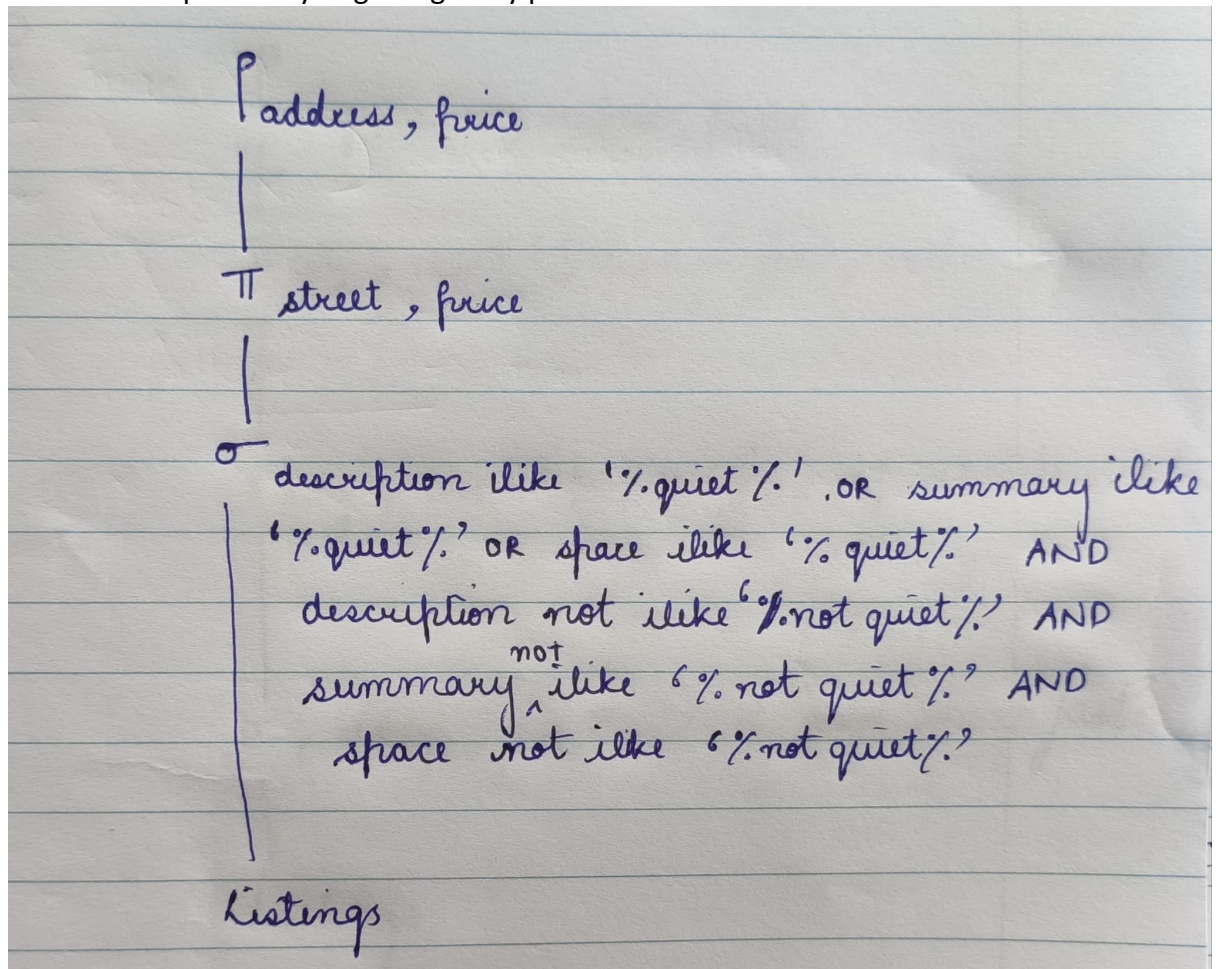 ρ address, price
π street, price
σ description ilike '%quiet%' OR summary ilike
'%quiet%' OR space ilike '%quiet%' AND
description not ilike '%not quiet%' AND
summary not ilike '%not quiet%' AND
space not ilike '%not quiet%'
Listings